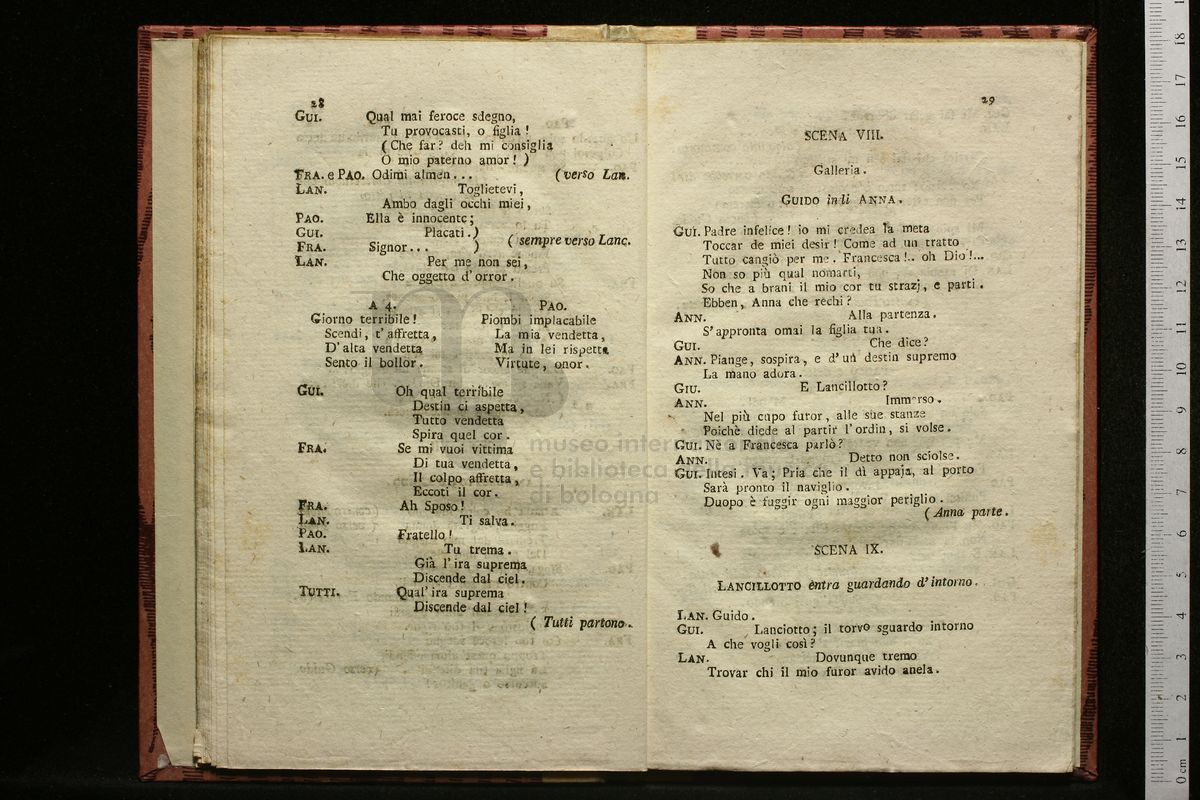 28
GUI. Qual mai feroce sdegno,
Tu provocasti, o figlia !
(Che far? deh mi consiglia
O mio paterno amor! )
FRA. e PAO. Odimi almen... (verso Lan.
LAN. Toglietevi,
Ambo dagli occhi miei,
PAO. Ella è innocente;
GUI. Placati.)
FRA. Signor... ) ( sempre verso Lanc.
LAN. Per me non sei,
Che oggetto d'orror.
A 4.
Giorno terribile!
Scendi, t'affretta,
D'alta vendetta
Sento il bollor.
PAO.
Piombi implacabile
La mia vendetta,
Ma in lei rispetta
Virtute, onor.
GUI. Oh qual terribile
Destin ci aspetta,
Tutto vendetta
Spira quel cor.
FRA. Se mi vuoi vittima
Di tua vendetta,
Il colpo affretta,
Eccoti il cor.
FRA. Ah Sposo!
LAN. Ti salva.
PAO. Fratello!
LAN. Tu trema.
Già l'ira suprema
Discende dal ciel.
TUTTI. Qual'ira suprema
Discende dal ciel!
( Tutti partono.
29
SCENA VIII.
Galleria.
GUIDO indi ANNA.
GUI. Padre infelice! io mi credea la meta
Toccar de miei desir! Come ad un tratto
Tutto cangiò per me. Francesca!.. oh Dio!...
Non so più qual nomarti,
So che a brani il mio cor tu strazj, e parti.
Ebben, Anna che rechi?
ANN. Alla partenza.
S'appronta omai la figlia tua.
GUI. Che dice?
ANN. Piange, sospira, e d'un destin supremo
La mano adora.
GIU. E Lancillotto?
ANN. Immerso.
Nel più cupo furor, alle sue stanze
Poichè diede al partir l'ordin, si volse.
GUI. Nè a Francesca parlò?
ANN. Detto non sciolse.
GUI. Intesi. Va; Pria che il dì appaja, al porto
Sarà pronto il naviglio.
Duopo è fuggir ogni maggior periglio.
( Anna parte.
SCENA IX.
LANCILLOTTO entra guardando d'intorno.
LAN. Guido.
GUI. Lanciotto; il torvo sguardo intorno
A che vogli così?
LAN. Dovunque tremo
Trovar chi il mio furor avido anela.
museo inter
e biblioteca della musica
di bologna
0 cm 1 2 3 4 5 6 7 8 9 10 11 12 13 14 15 16 17 18